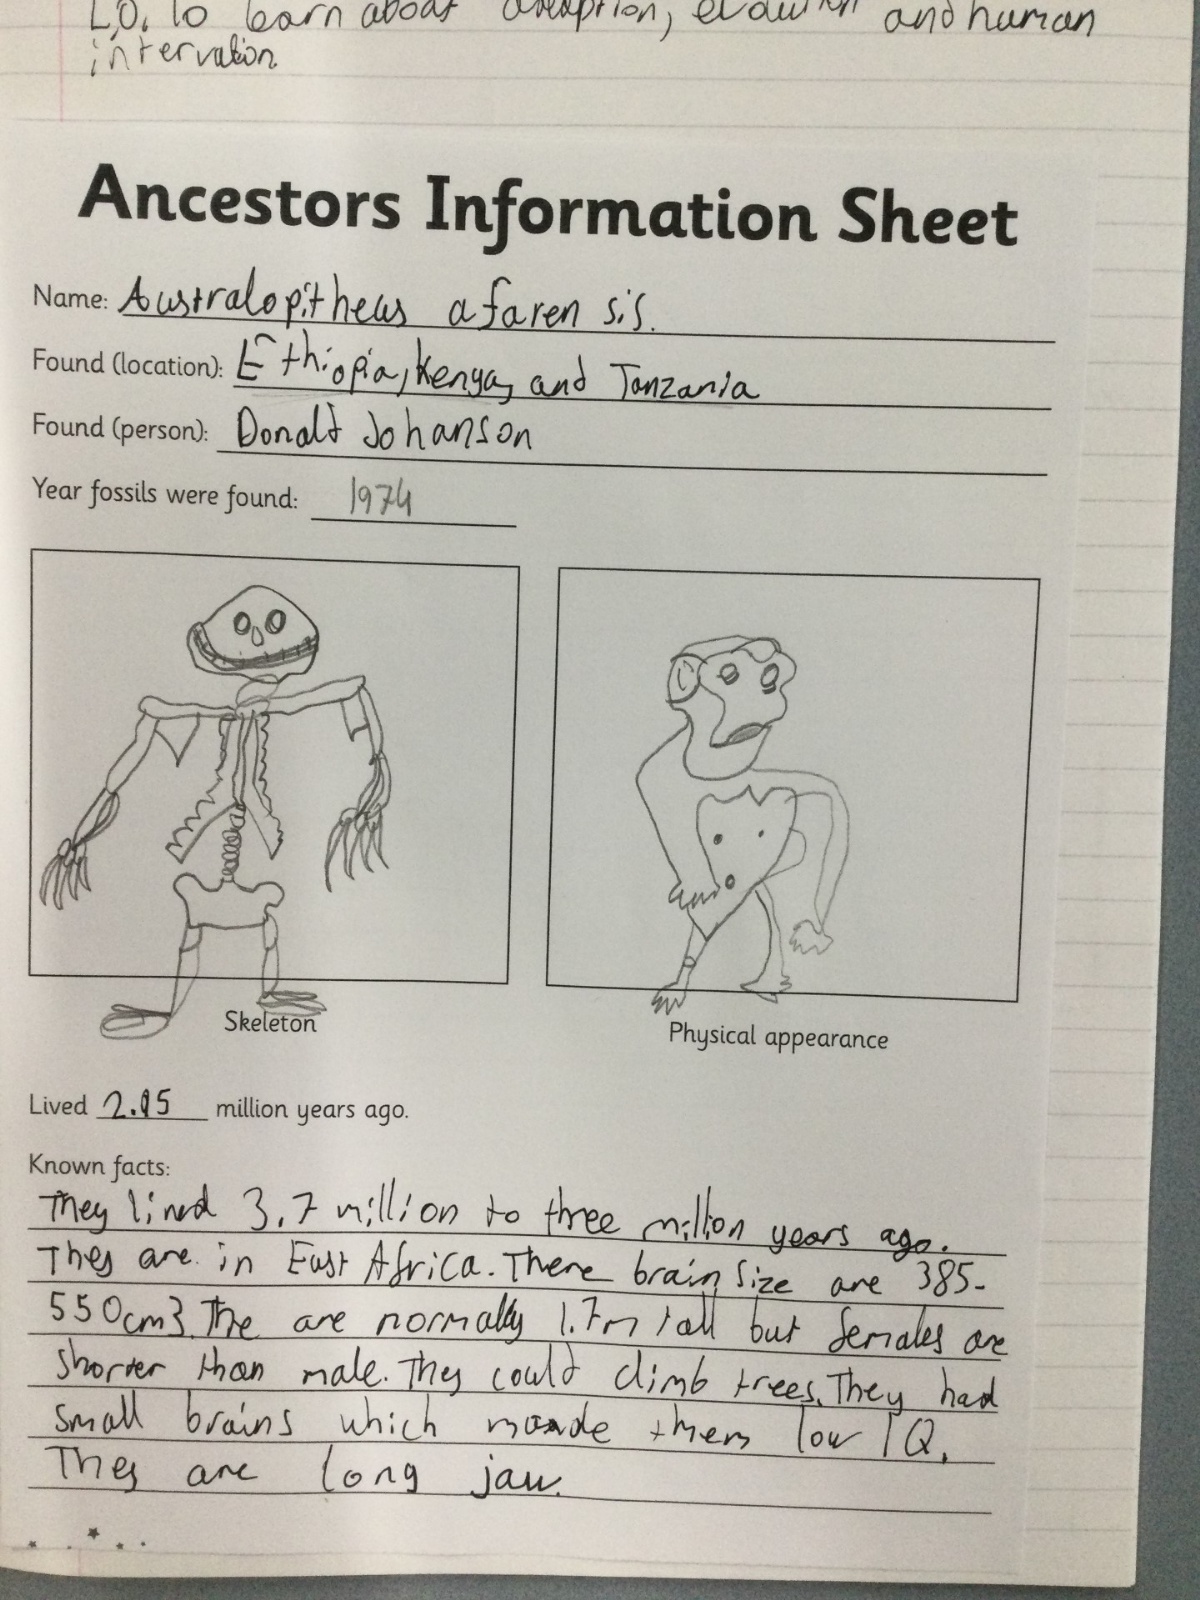 L.O. To learn about adaption, evolution and human
intervation.
Ancestors Information Sheet
Name: Australopitheus afaren sis.
Found (location): Ethiopia, Kenya, and Tanzania
Found (person): Donald Johanson
Year fossils were found: 1974
Skeleton
Physical appearance
Lived 2.95 million years ago.
Known facts:
They lived 3.7 million to three million years ago.
They are in East Africa. There brain size are 385-
550cm3. The are normally 1.7m tall but females are
shorter than male. They could climb trees. They had
small brains which made them low IQ.
They are long jaw.